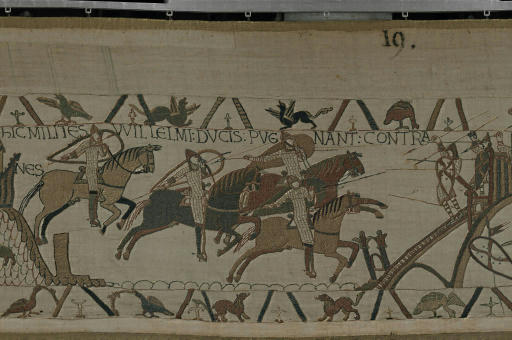 19.
HIC MILITES WILLELMI: DUCIS: PUG NANT: CONTRA
NES